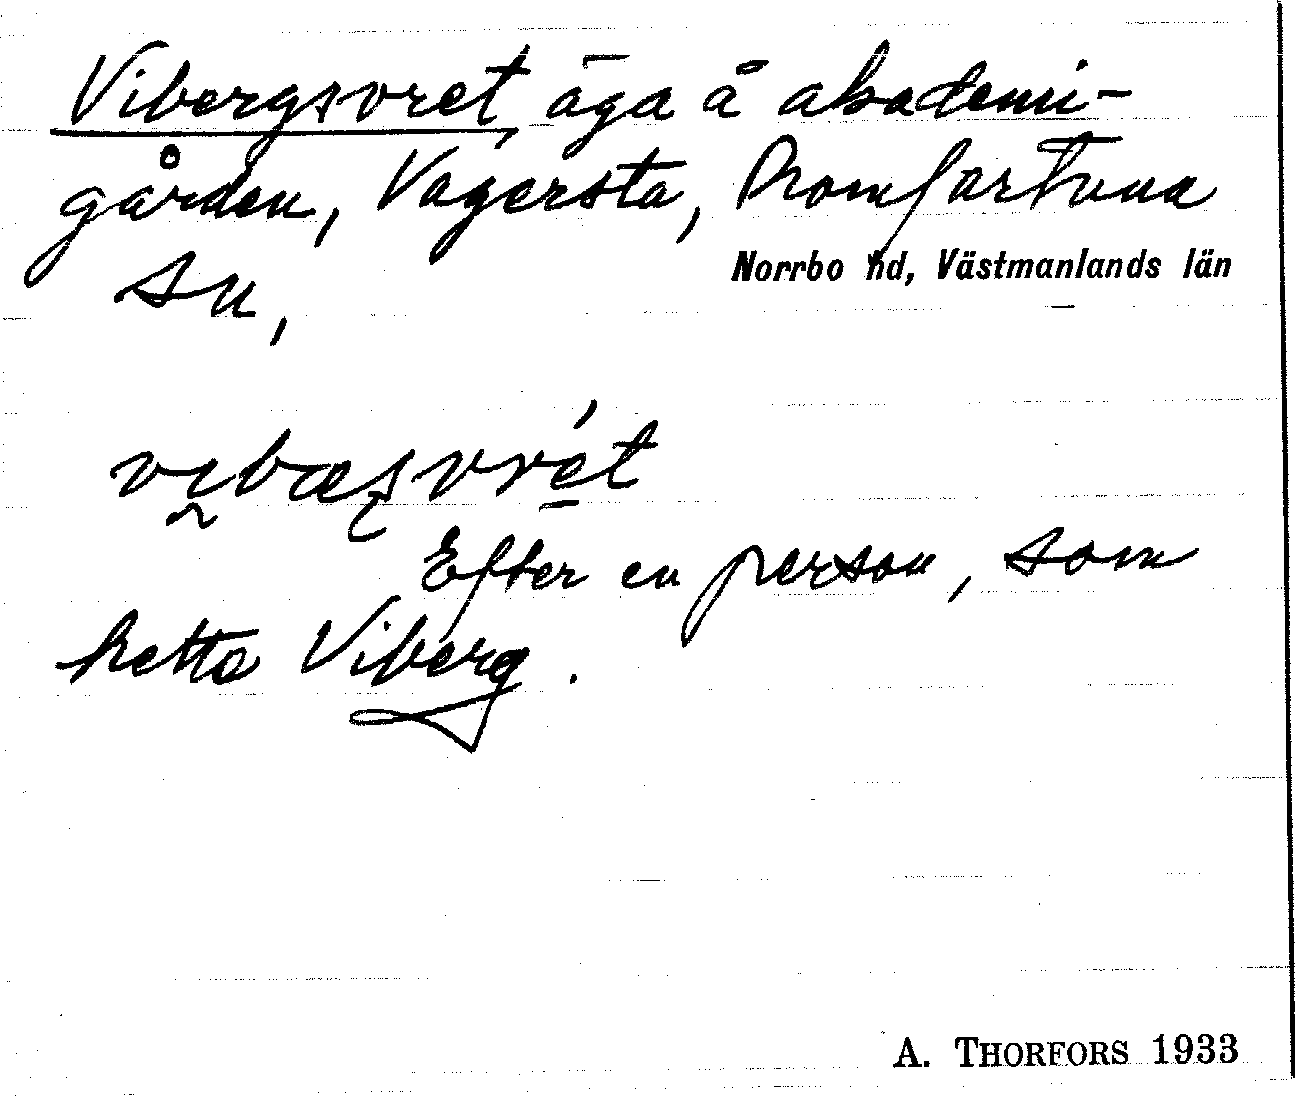 Vibergsvret, äga å akademi-
gården, Vagersta, Romfartuna
Norrbo hd, Västmanlands län
sn,
Efter en person, som
hette Viberg.
A. THORFORS 1933